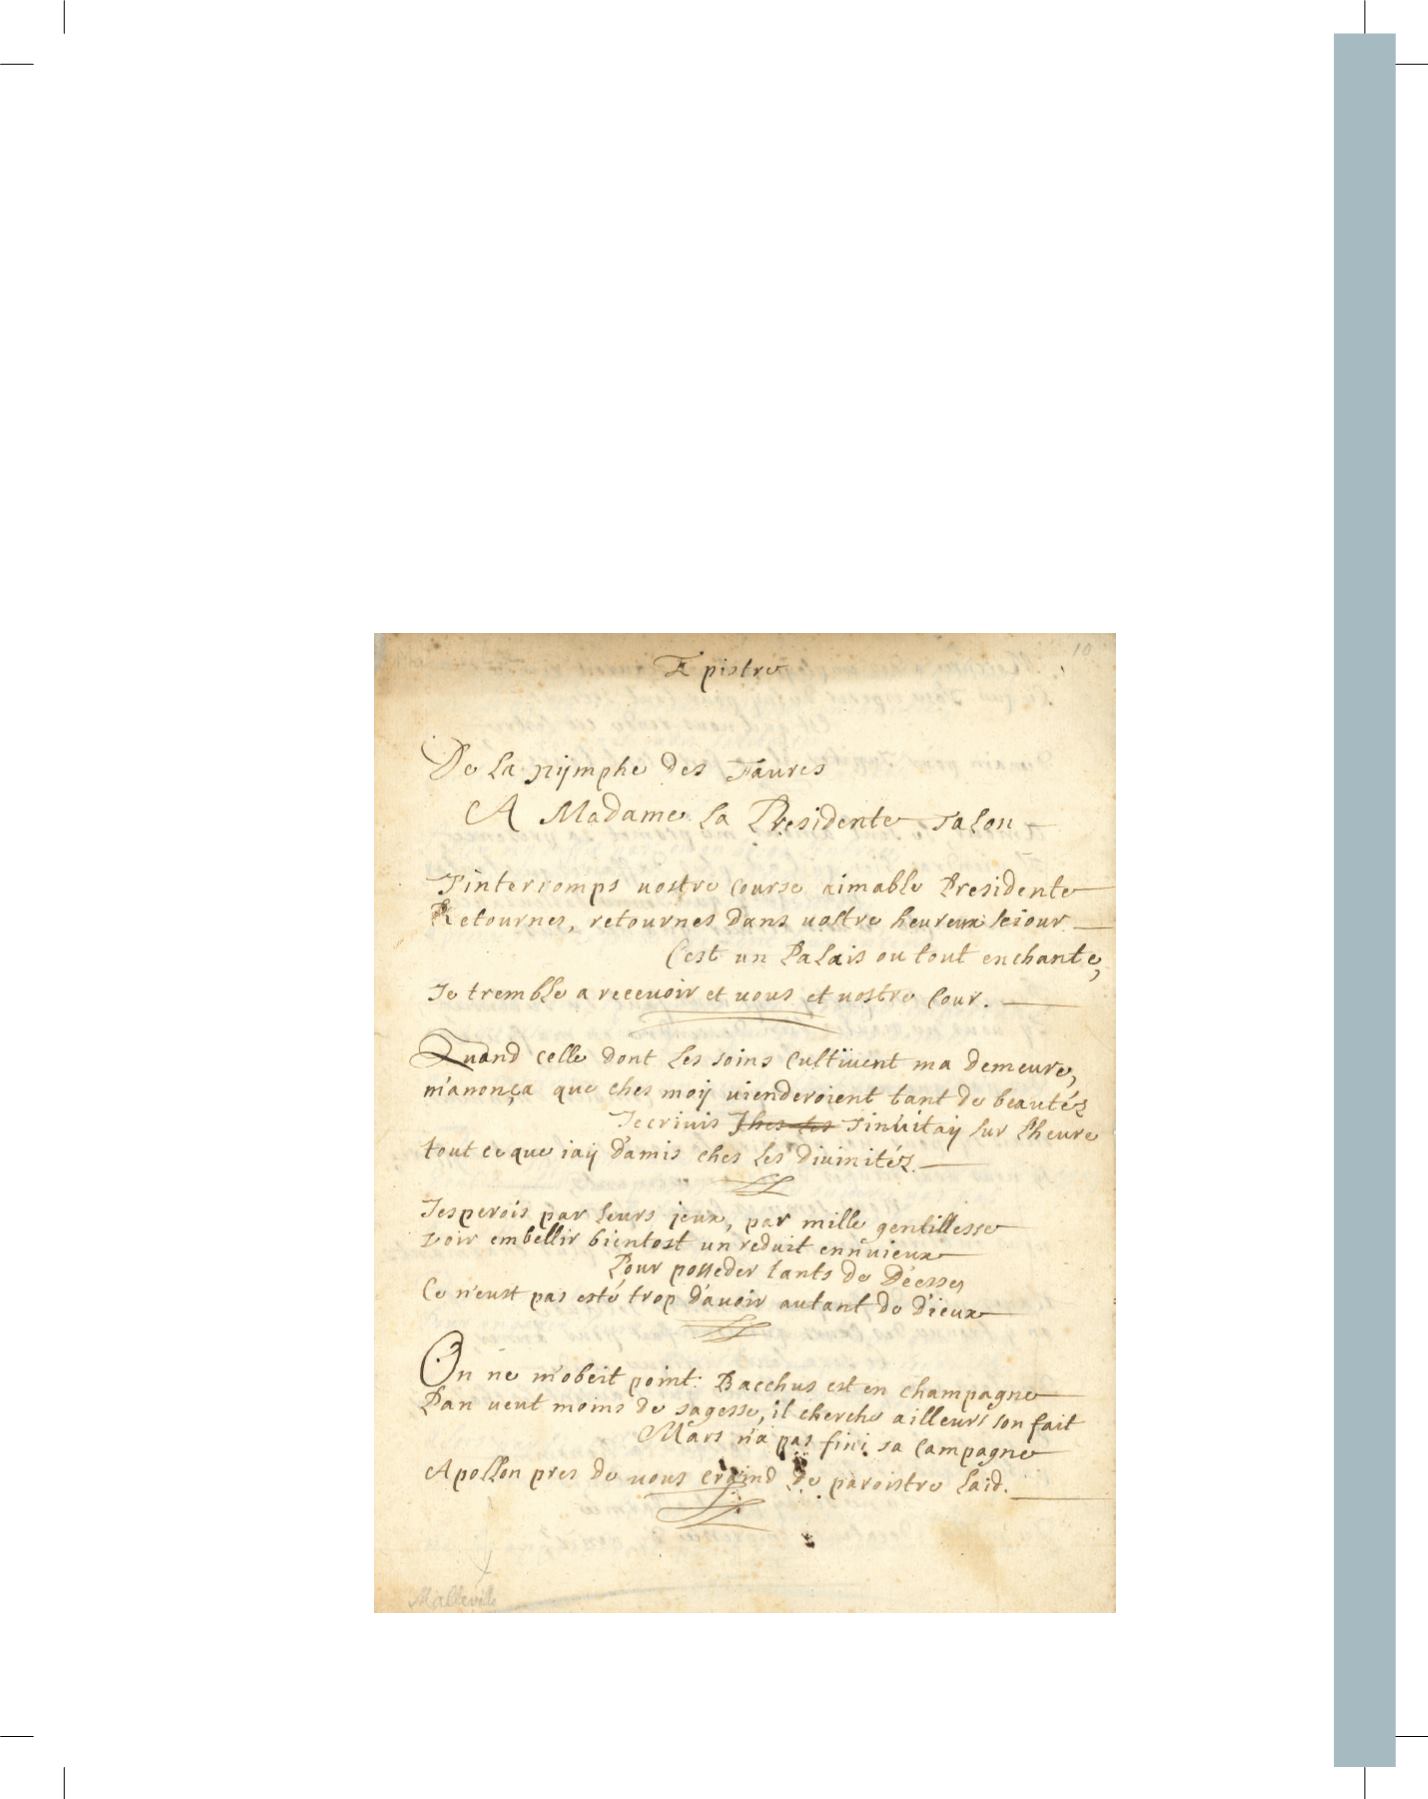 10
Epistre
De la nijmphe des Faures
A Madame la Presidente Talon
J'interromps vostre course aimable Presidente
Retournes, retournes dans vostre heureux seiour
C'est un Palais ou tout enchante,
Je tremble a recevoir et vous et vostre Cour.
Quand celle dont les soins cultivent ma demeure,
m'anonça que ches moij vienderoient tant de beautéz
Jecrivis J'invitaij sur l'heure
tout ce que iaij d'amis ches les divinitéz
Jesperois par leurs jeux, par mille gentillesse
voir embellir bientost un reduit ennuieux
Pour posseder tants de Déesses
Ce n'eust pas esté trop d'avoir autant de dieux
On ne m'obeit point: Bacchus est en champagne
Pan veut moins de sagesse, il cherche ailleurs son fait
Mars n'a pas fini sa Campagne
Apollon pres de vous craind de paroistre laid.
Malleville